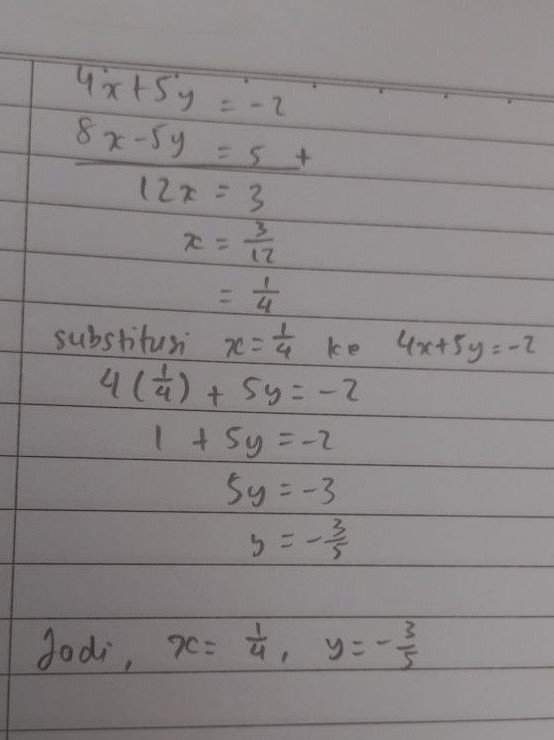 4x+5y = -2
8x-5y = 5 +
12x = 3
x = 3/12
= 1/4
substitusi x = 1/4 ke 4x+5y = -2
4(1/4) + 5y = -2
1 + 5y = -2
5y = -3
y = -3/5
Jadi, x = 1/4, y = -3/5